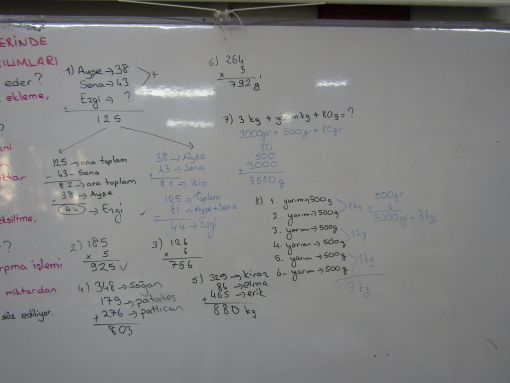 ERİNDE
ILIMLARI
eder?
ekleme,
?
ani
ktar
ksiltme,
?
rpma işlemi
miktardan
söz ediliyor.
1) Ayşe → 38
Sena → 43
Ezgi → ?
+
125
125 → ana toplam
- 43 - Sena
82 → ara toplam
- 38 → Ayşe
44 → Ezgi
38 → Ayşe
+ 43 → Sena
81 → ikisi
125 → Toplam
- 81 → Ayşe+Sena
44 → Ezgi
2) 185
x 5
925 ✓
3) 126
x 6
756
4) 348 → Soğan
179 → patates
+ 276 → patlıcan
803
5) 329 → kiraz
86 → elma
+ 465 → erik
880 kg
6) 264
x 3
792 g
7) 3 kg + yarım kg + 80g = ?
3000gr + 500gr + 80gr
80
500
+ 3000
3580 g
8) 1. yarım → 500g
2. yarım → 500g
1kg
3. yarım → 500g
4. yarım → 500g
1kg
5. yarım → 500g
6 - yarım → 500g
1kg
3 kg
500gr
x 6
3000gr = 3kg